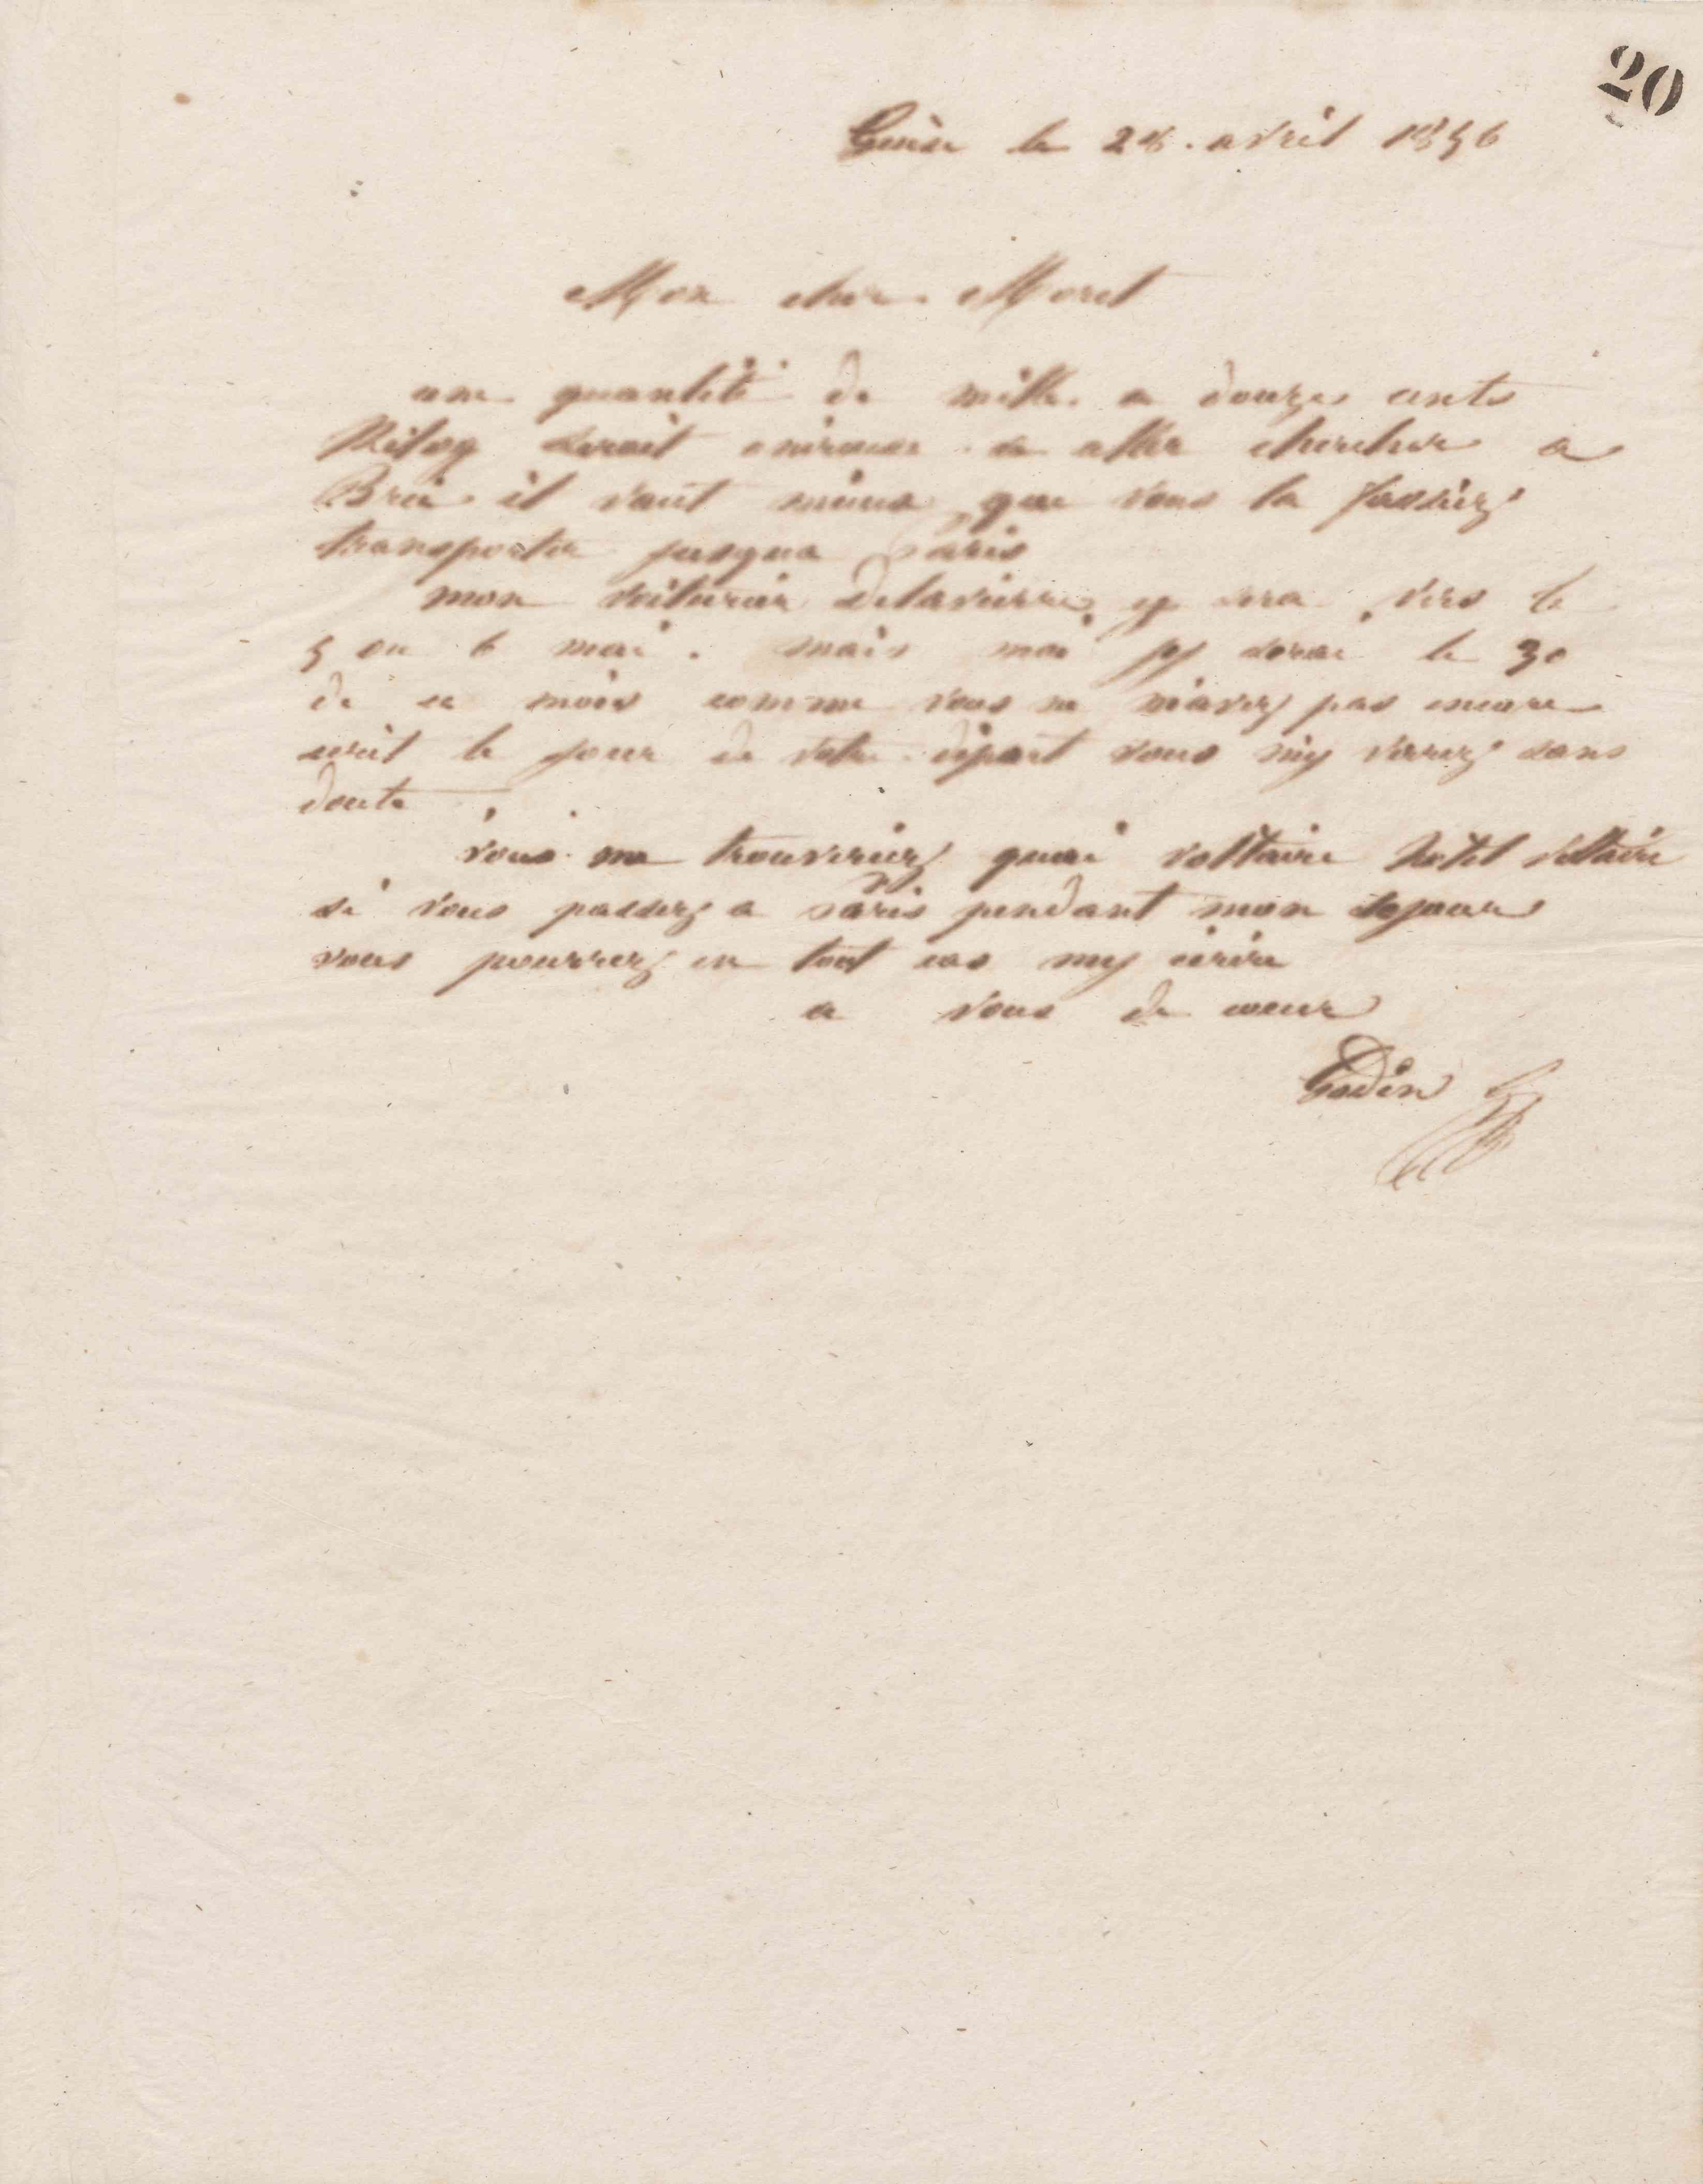 20
Guise le 28 avril 1856
Mon cher Moret
une quantité de mille a douze cents
Kilog serait onéreuse a aller chercher a
Brie il vaut mieux que vous la fassiez
transporter jusqua Paris
mon voiturier y sera vers le
5 ou 6 mai. mais moi jy serai le 30
de ce mois comme vous ne mavez pas encore
écrit le jour de votre départ vous my verrez sans
doute.
vous me trouveriez quai voltaire hotel voltaire
si vous passez a Paris pendant mon sejour
vous pourrez en tout cas my écrire
a vous de cœur
Godin